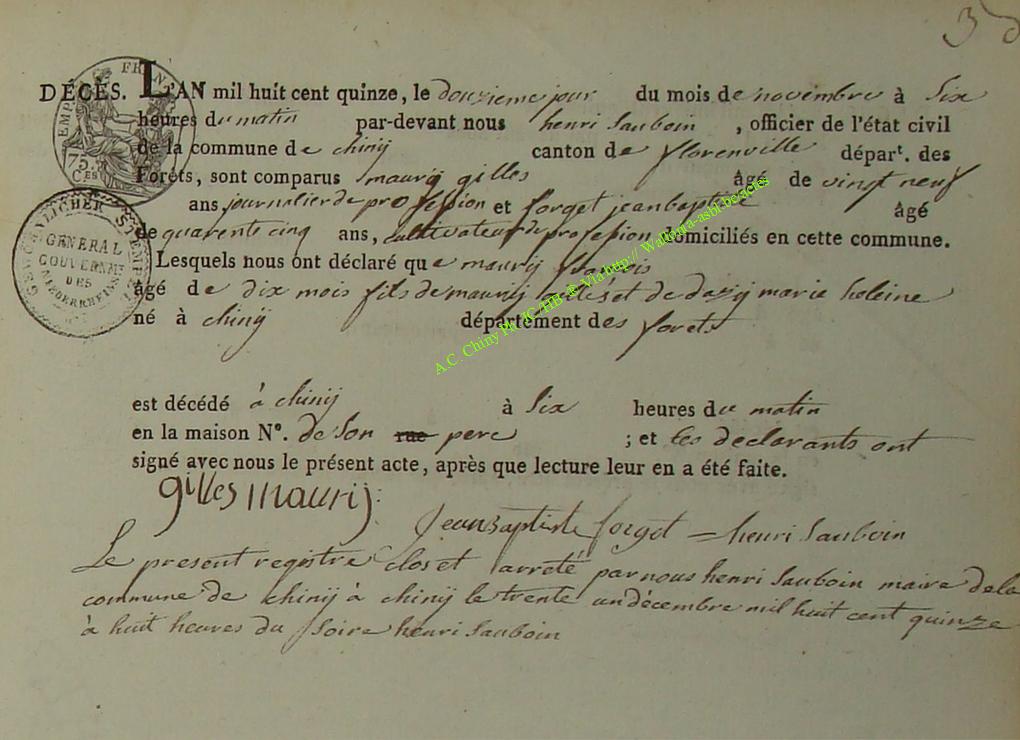 3
DÉCÈS. L'AN mil huit cent quinze, le douzieme jour du mois de novembre à Six
heures du matin par-devant nous henri Sauboin, officier de l'état civil
de la commune de chinij canton de florenville départ. des
Forêts, sont comparus maurij gilles âgé de vingt neuf
ans journalier de profession et forget jean baptiste âgé
de quarente cinq ans, cultivateur de profesion domiciliés en cette commune.
Lesquels nous ont déclaré que maurij francois
âgé de dix mois fils de maurij gilles et de dazij marie heleine
né à chinij département des forets
est décédé à chinij à Six heures du matin
en la maison N°. de son rue pere ; et les declarants ont
signé avec nous le présent acte, après que lecture leur en a été faite.
gilles maurij
jean baptiste forget henri Sauboin
Le present registre clos et arreté par nous henri Sauboin maire dela
commune de chinij à chinij le trente un décembre mil huit cent quinze
à huit heures du soire henri Sauboin
EMP FRAN
75
CES
STEMPEL
GENERAL
GOUVERNMT
DES
NIEDERRHEINS
A.C. Chiny Ph. JC HB & Via http:// Wallonia-asbl.be/actes